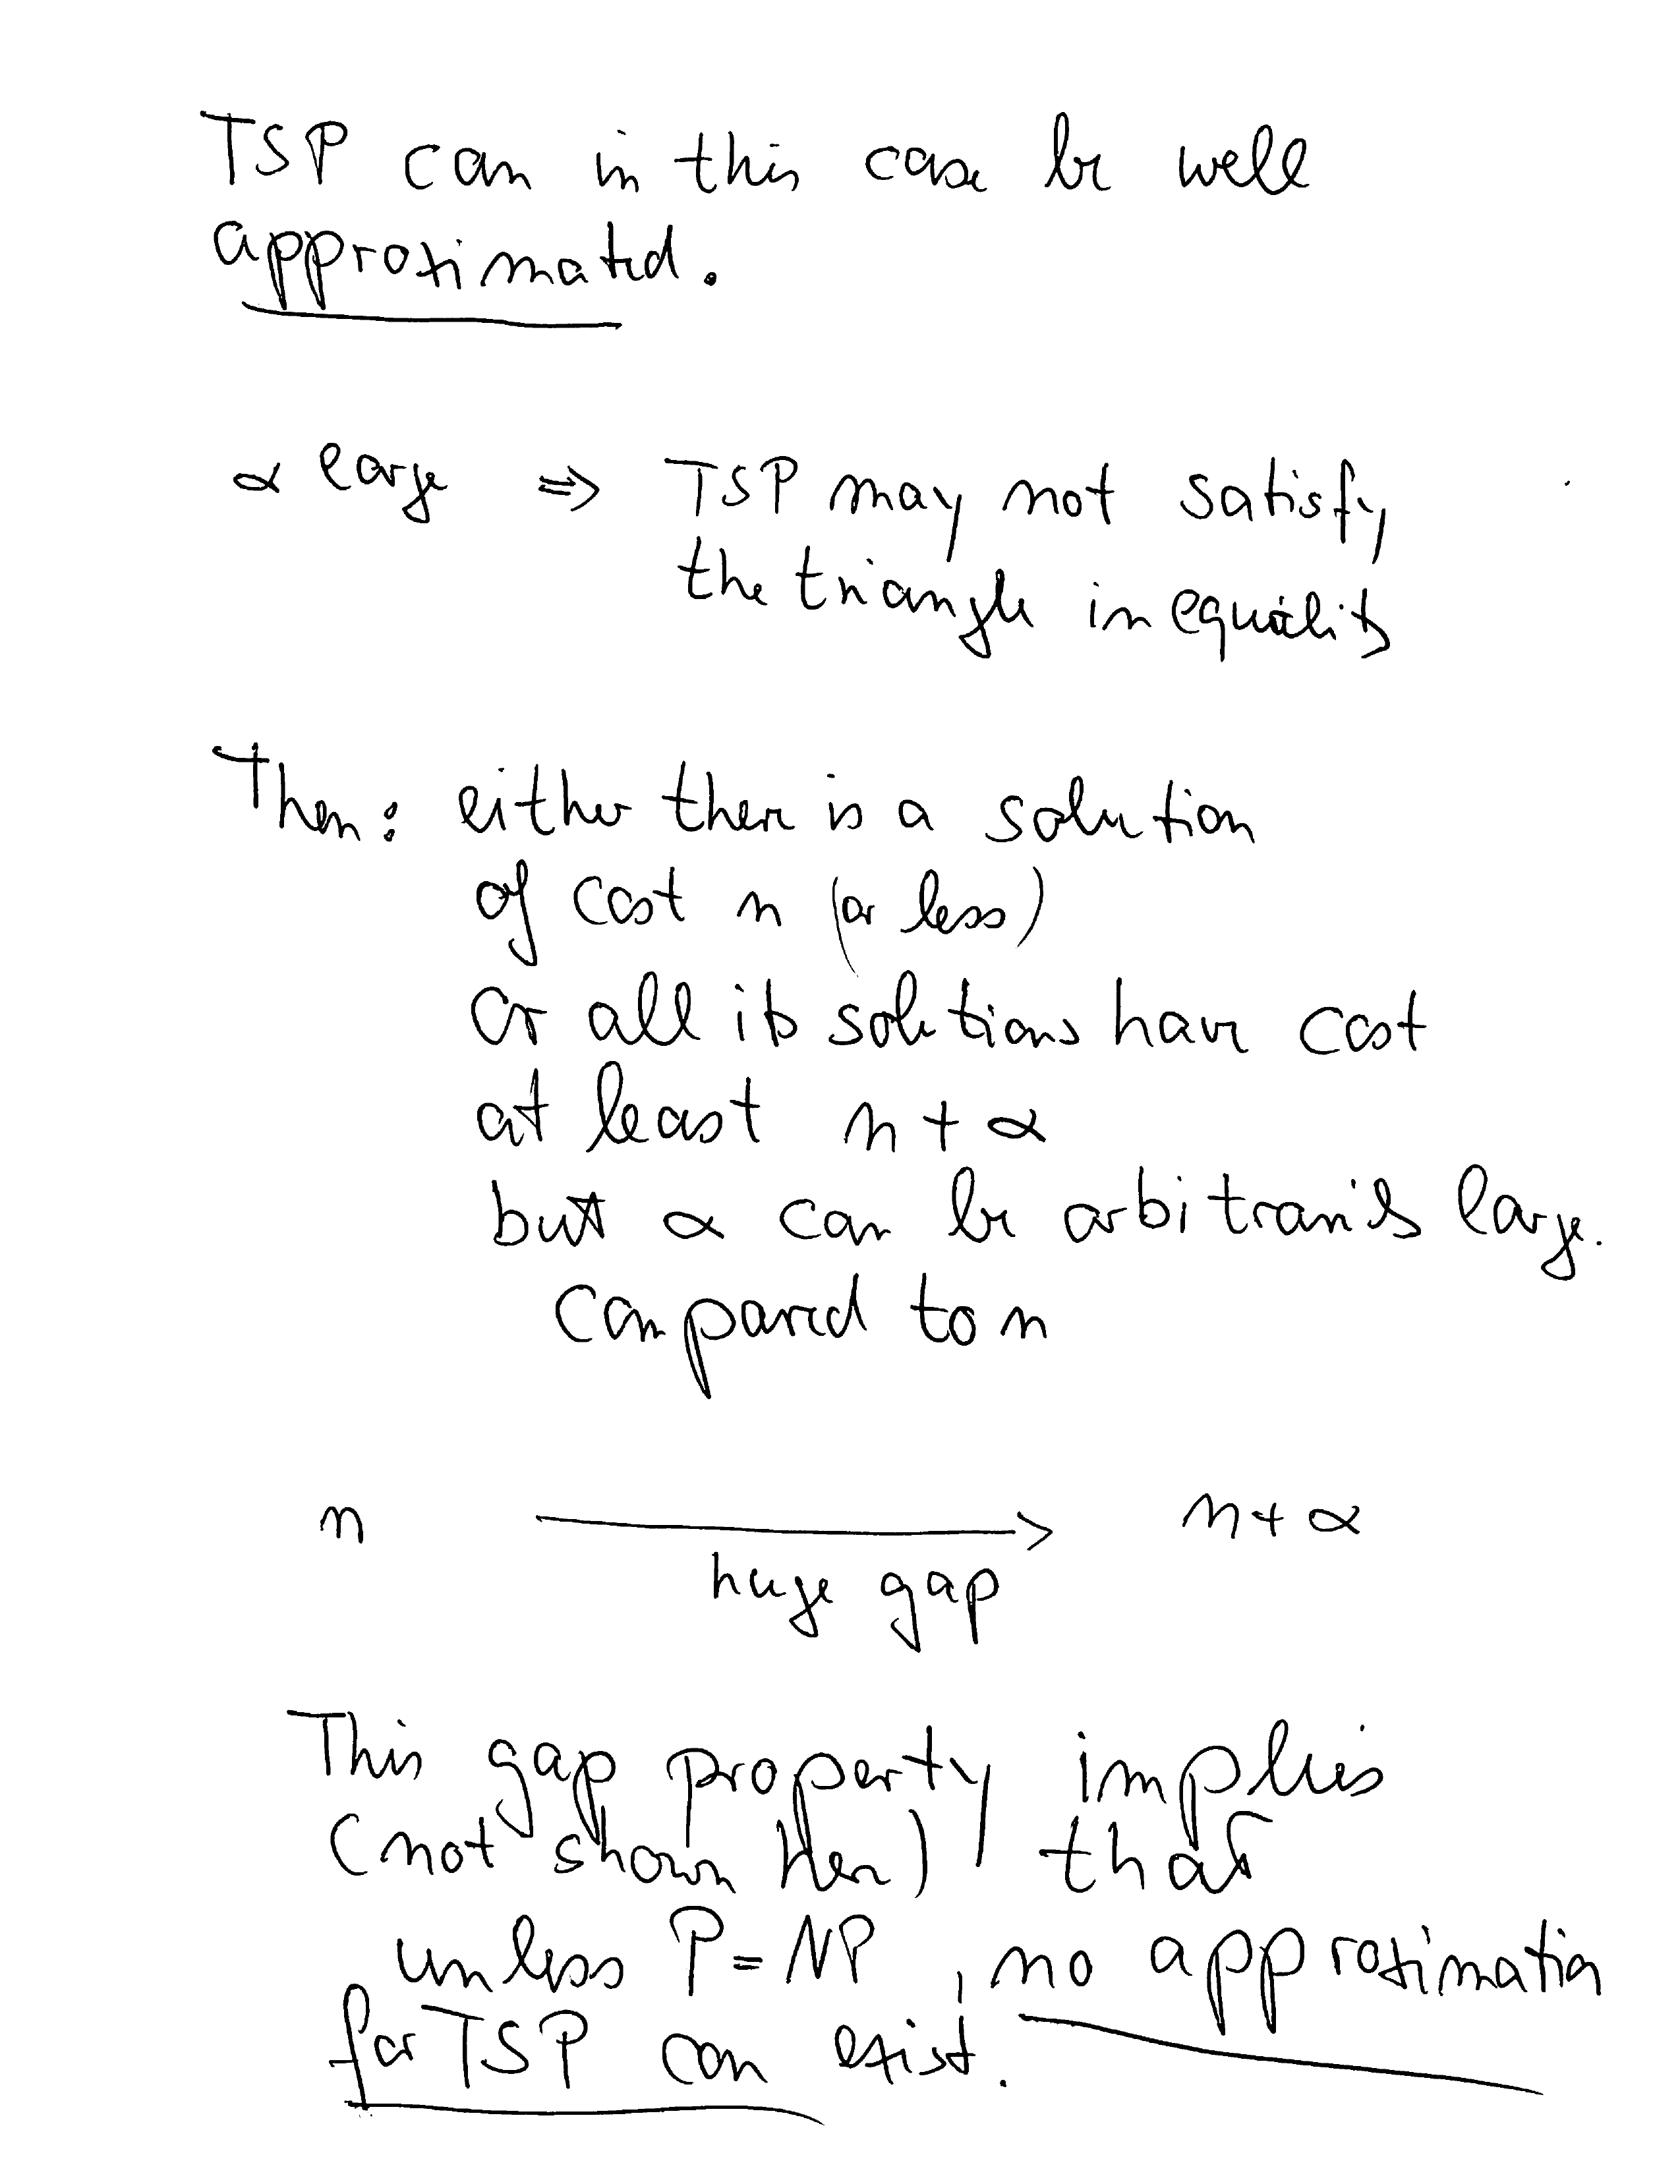 TSP can in this case be well
approximated.
α large ⇒ TSP may not satisfy
the triangle inequality
Then: either there is a solution
of cost n (or less)
or all its solutions have cost
at least n + α
but α can be arbitrarily large.
compared to n
n ⟶ n + α
huge gap
This gap property implies
(not shown here) that
unless P = NP, no approximation
for TSP can exist.